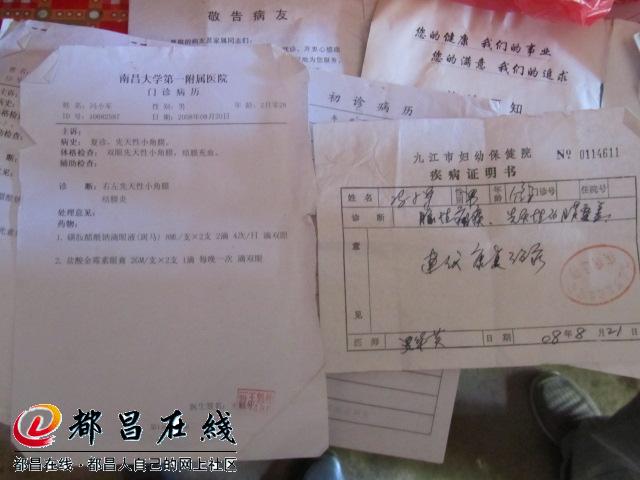 敬告病友
您的健康 我们的事业
您的满意 我们的追求
南昌大学第一附属医院
门诊病历
姓名:冯小军 性别:男 年龄:2月零28
ID号:10682587 日期:2008年08月20日
主诉:
病史:复诊,先天性小角膜,
体格检查:双眼先天性小角膜,结膜充血。
辅助检查:
诊断:右左先天性小角膜
结膜炎
处理意见:
药物:
1. 磺胺醋酰钠滴眼液(斑马) 8ML/支×2支 2滴 4次/日 滴双眼
2. 盐酸金霉素眼膏 2GM/支×2支 1滴 每晚一次 滴双眼
医生签名:
初诊病历
九江市妇幼保健院
No 0114611
疾病证明书
姓名 性别 男 年龄 门诊号 住院号
诊断 脑性瘫痪、
意见 建议康复治疗
医师 日期 08年8月21日
都昌在线
都昌在线·都昌人自己的网上社区